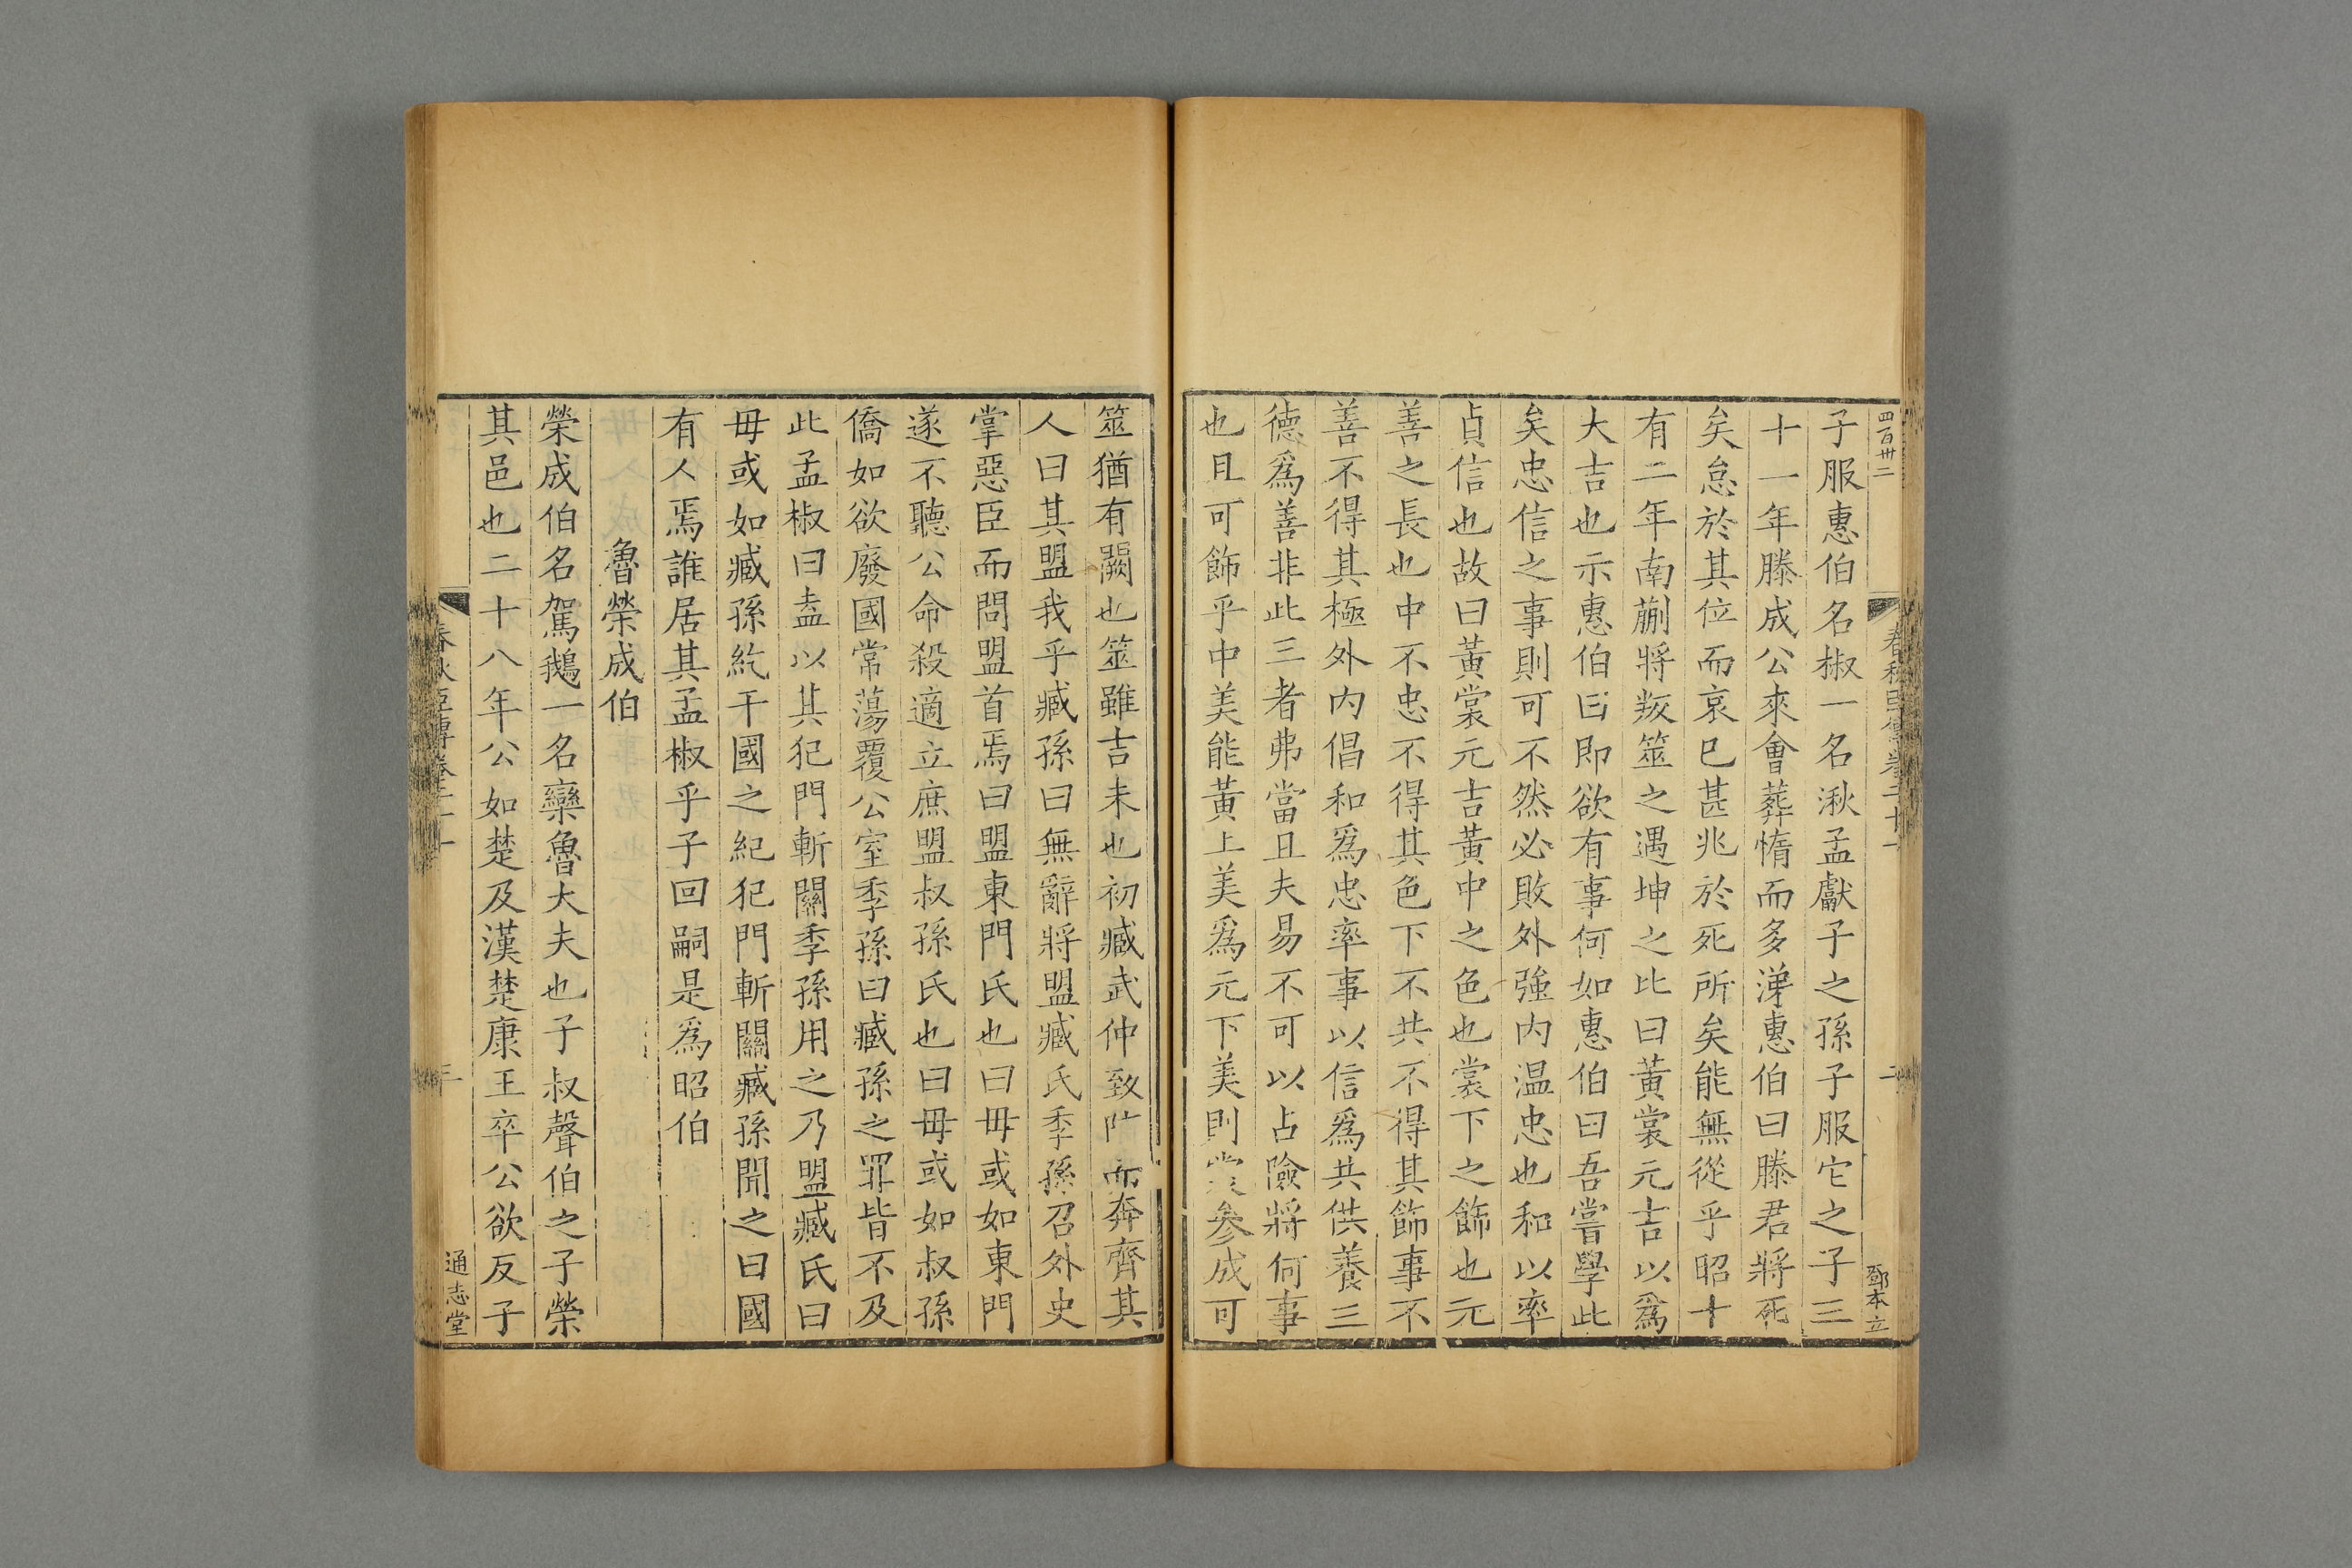 四百卅二
子服惠伯名椒一名湫孟獻子之孫子服它之子三
十一年滕成公來會葬惰而多涕惠伯曰滕君將死
矣怠於其位而哀已甚兆於死所矣能無從乎昭十
有二年南蒯將叛筮之遇坤之比曰黃裳元吉以爲
大吉也示惠伯曰即欲有事何如惠伯曰吾嘗學此
矣忠信之事則可不然必敗外強内温忠也和以率
貞信也故曰黃裳元吉黃中之色也裳下之飾也元
善之長也中不忠不得其色下不共不得其飾事不
善不得其極外内倡和爲忠率事以信爲共供養三
德爲善非此三者弗當且夫易不可以占險將何事
也且可飾乎中美能黃上美爲元下美則裳參成可
春秋臣傳卷二十一
二
鄧本立
筮猶有闕也筮雖吉未也初臧武仲致防而奔齊其
人曰其盟我乎臧孫曰無辭將盟臧氏季孫召外史
掌惡臣而問盟首焉曰盟東門氏也曰毋或如東門
遂不聽公命殺適立庶盟叔孫氏也曰毋或如叔孫
僑如欲廢國常蕩覆公室季孫曰臧孫之罪皆不及
此孟椒曰盍以其犯門斬關季孫用之乃盟臧氏曰
毋或如臧孫紇干國之紀犯門斬關臧孫聞之曰國
有人焉誰居其孟椒乎子回嗣是爲昭伯
魯榮成伯
榮成伯名駕鵝一名欒魯大夫也子叔聲伯之子榮
其邑也二十八年公如楚及漢楚康王卒公欲反子
春秋臣傳卷二十一
三
通志堂